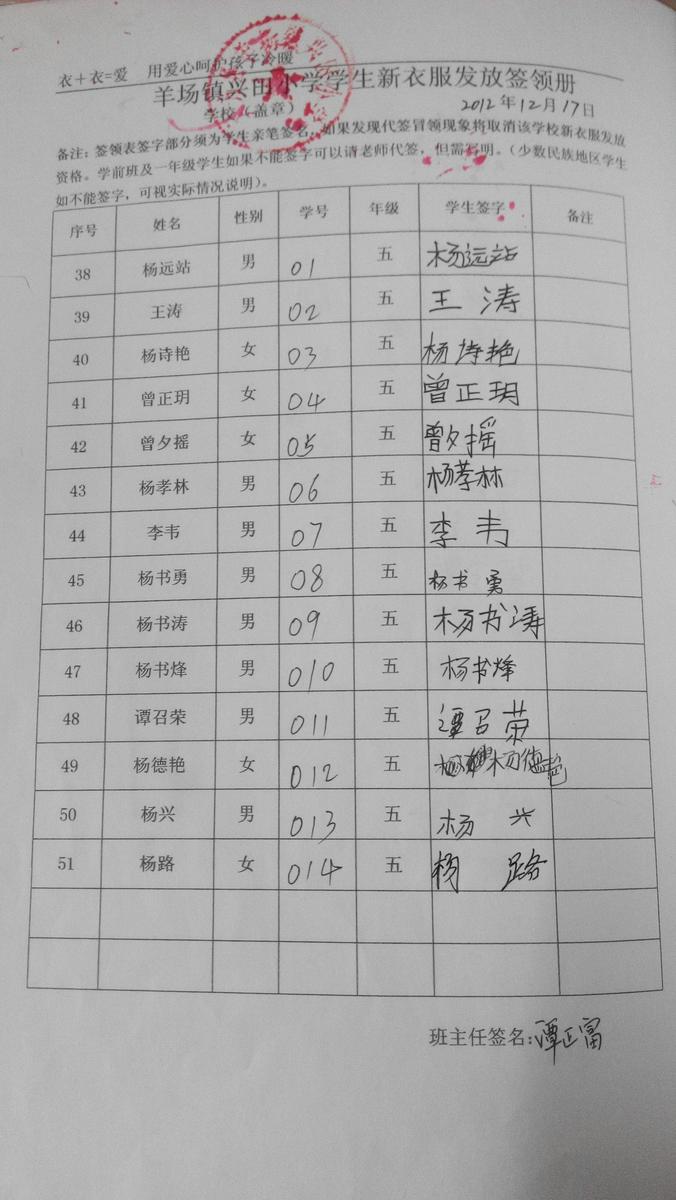 衣+衣=爱 用爱心呵护孩子冷暖
羊场镇兴田小学学生新衣服发放签领册
学校（盖章） 2012年12月17日
备注：签领表签字部分须为学生亲笔签名，如果发现代签冒领现象将取消该学校新衣服发放
资格。学前班及一年级学生如果不能签字可以请老师代签，但需写明。（少数民族地区学生
如不能签字，可视实际情况说明）。
序号 姓名 性别 学号 年级 学生签字 备注
38 杨远站 男 01 五 杨远站
39 王涛 男 02 五 王涛
40 杨诗艳 女 03 五 杨诗艳
41 曾正玥 女 04 五 曾正玥
42 曾夕摇 女 05 五 曾夕摇
43 杨孝林 男 06 五 杨孝林
44 李韦 男 07 五 李韦
45 杨书勇 男 08 五 杨书勇
46 杨书涛 男 09 五 杨书涛
47 杨书烽 男 010 五 杨书烽
48 谭召荣 男 011 五 谭召荣
49 杨德艳 女 012 五 杨德艳
50 杨兴 男 013 五 杨兴
51 杨路 女 014 五 杨路
班主任签名:谭正富